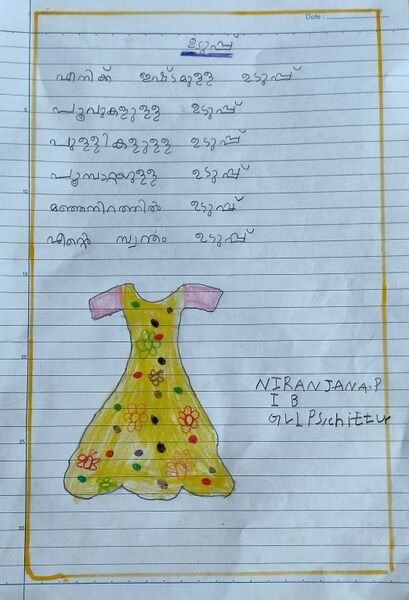 Date :
ഉടുപ്പ്
എനിക്ക് ഇഷ്ടമുള്ള ഉടുപ്പ്
പൂവുകളുള്ള ഉടുപ്പ്
പുള്ളികളുള്ള ഉടുപ്പ്
പൂമ്പാറ്റയുള്ള ഉടുപ്പ്
മഞ്ഞനിറത്തിൽ ഉടുപ്പ്
എന്റെ സ്വന്തം ഉടുപ്പ്
5
10
15
20
25
30
NIRANJANA.P
I B
GVLPS,chittur